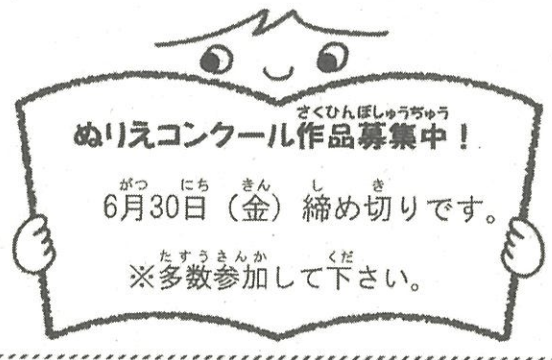 ぬりえコンクール作品募集中!
6月30日(金)締め切りです。
※多数参加して下さい。